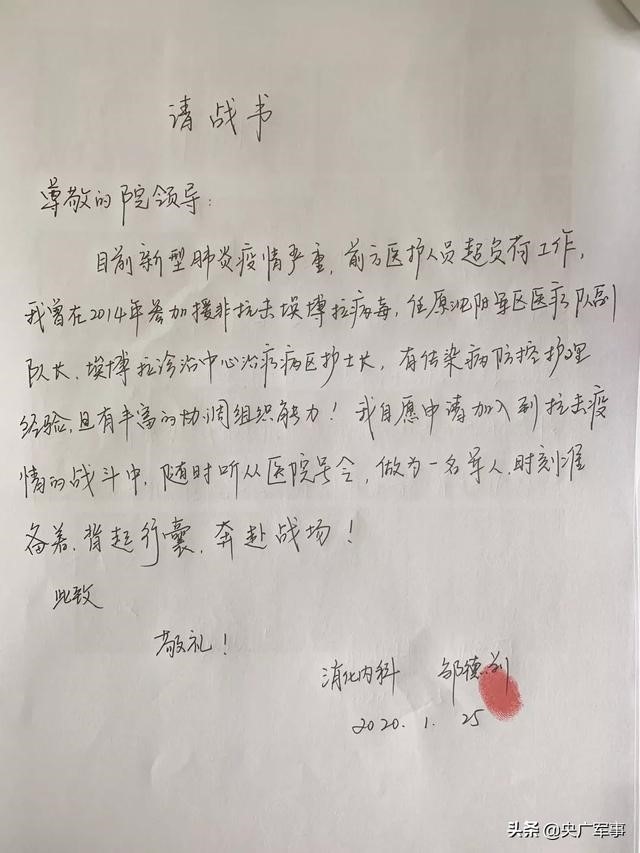 请战书
尊敬的院领导:
目前新型肺炎疫情严重,前方医护人员超负荷工作,
我曾在2014年参加援非抗击埃博拉病毒,任原沈阳军区医疗队副
队长、埃博拉诊治中心治疗病区护士长,有传染病防控护理
经验,且有丰富的协调组织能力!我自愿申请加入到抗击疫
情的战斗中,随时听从医院号令,做为一名军人,时刻准
备着,背起行囊,奔赴战场!
此致
敬礼!
消化内科 邹德
2020.1.25
头条@央广军事